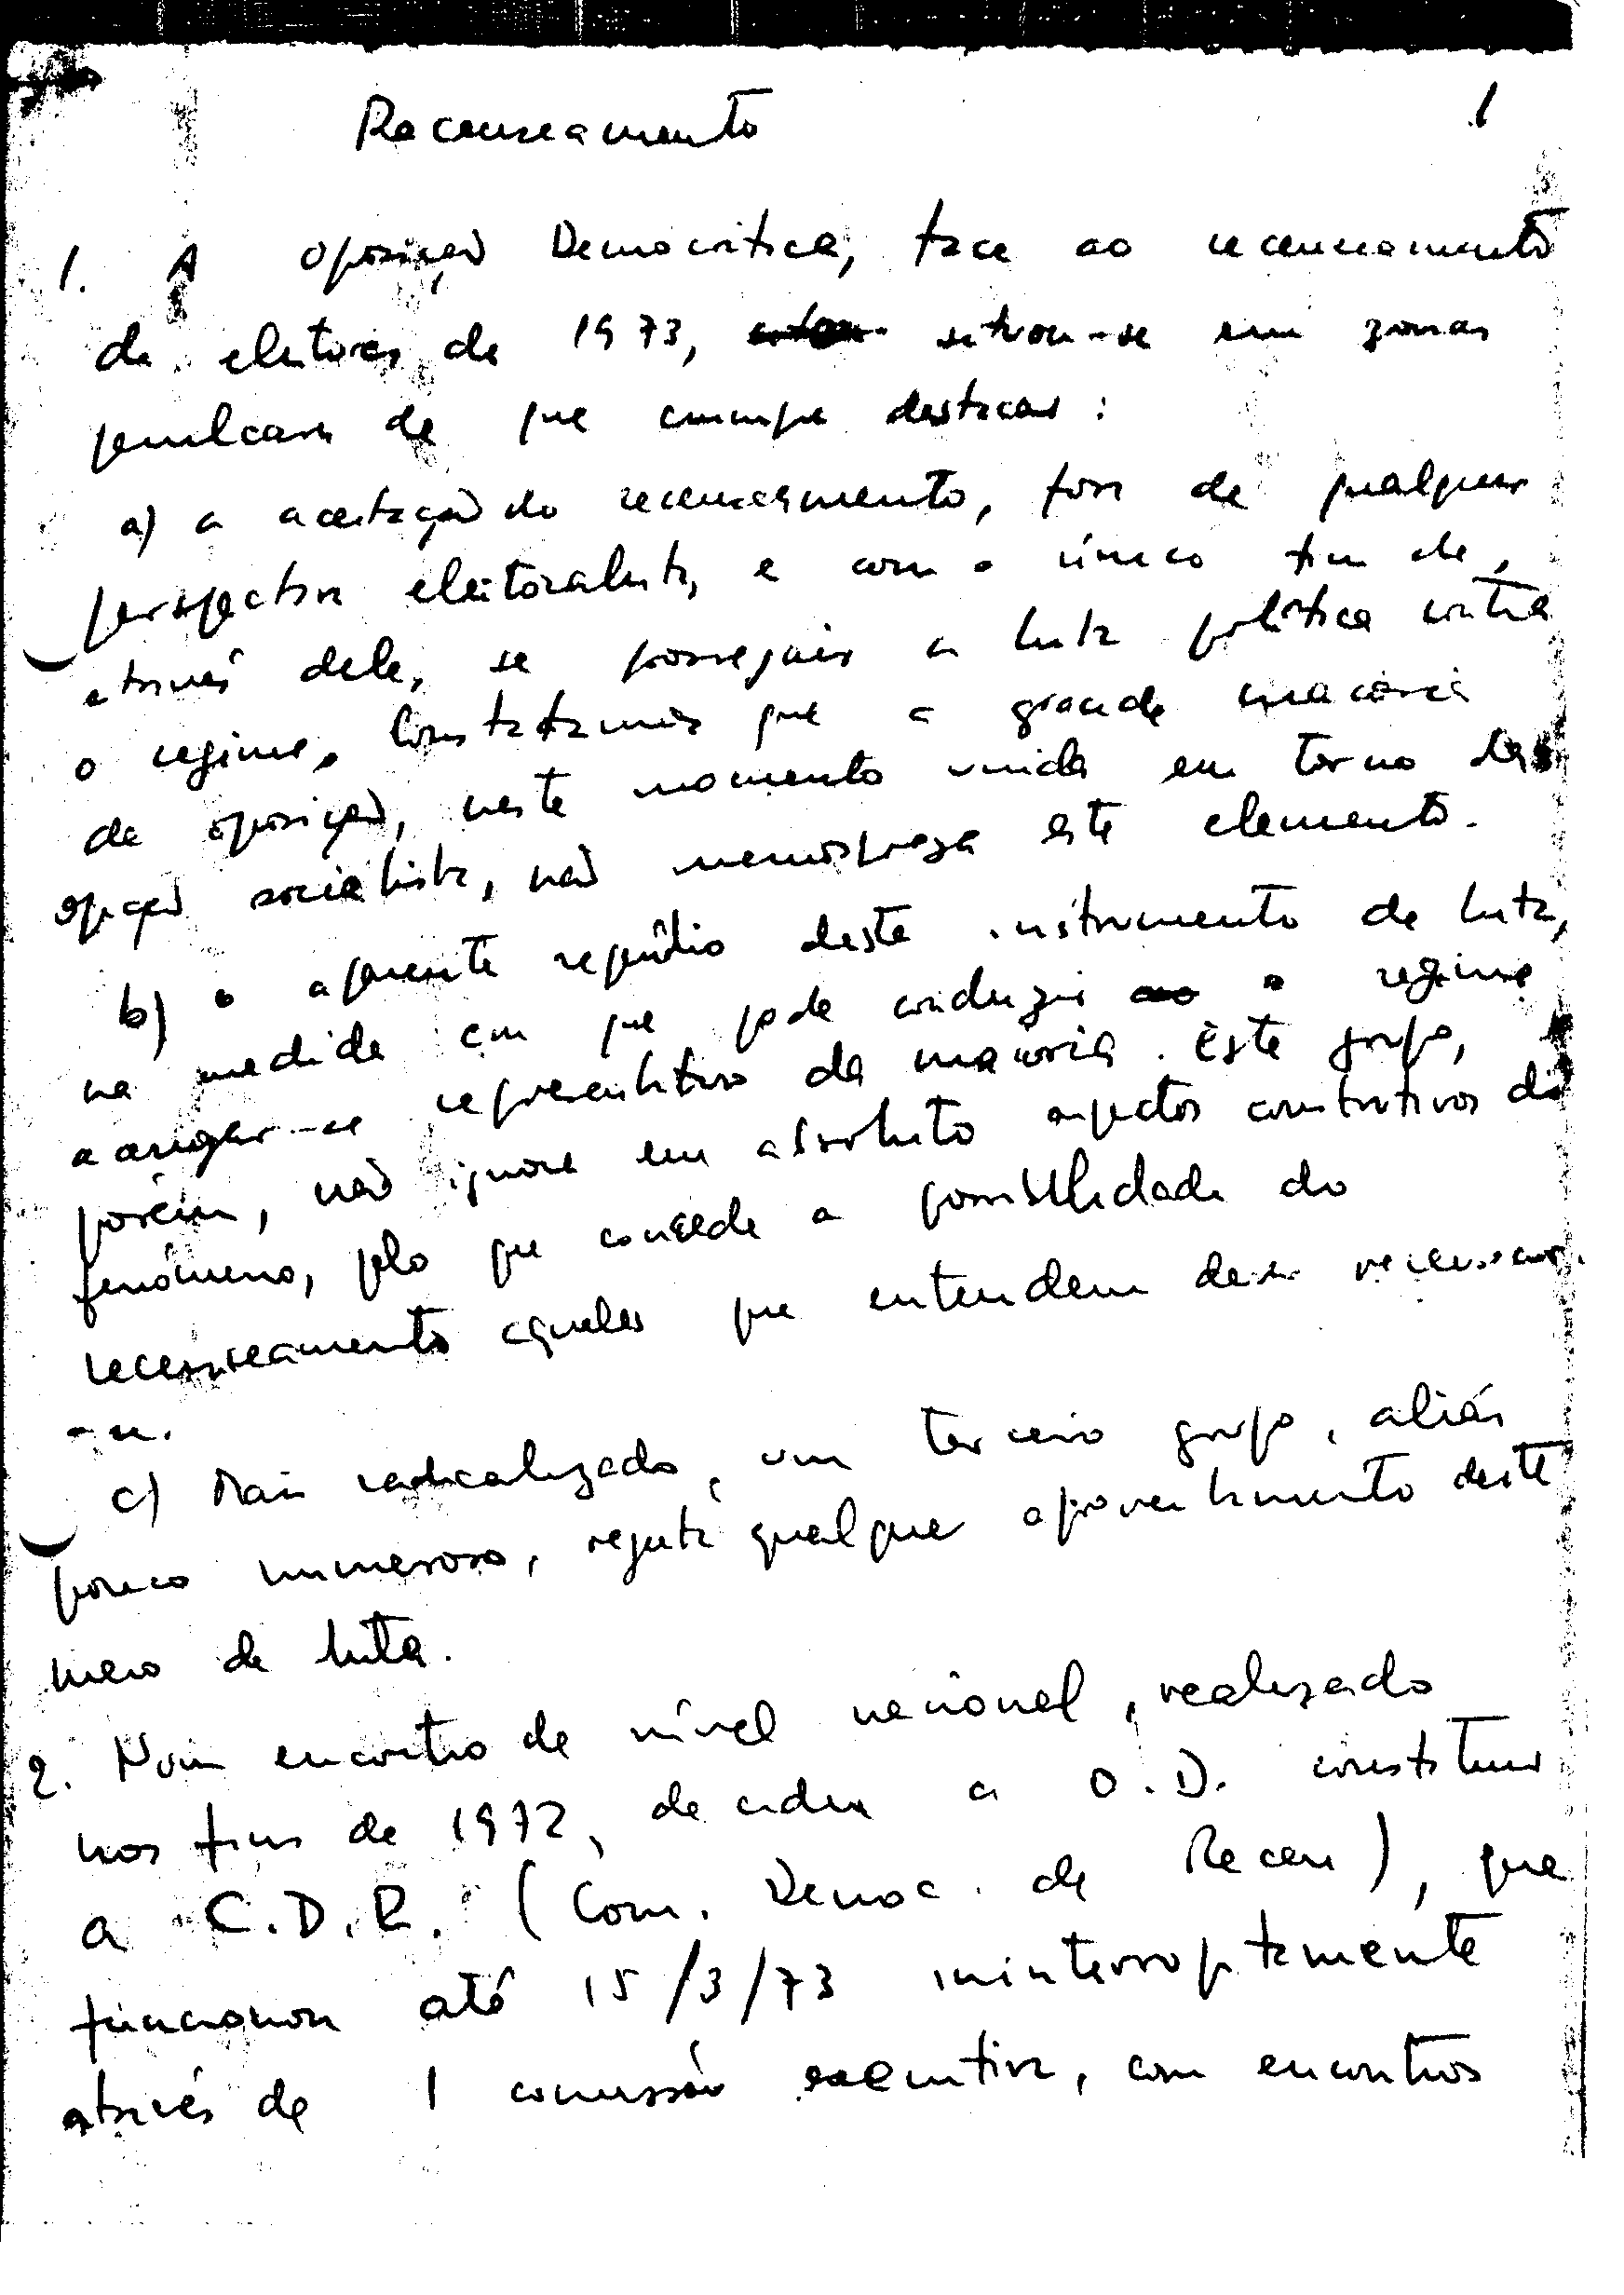 Recenseamento 1
1. A oposição Democrática, face ao recenseamento
de eleitores de 1973, situou-se em zonas
peculiares de que cumpre destacar:
a) a aceitação do recenseamento, fora de qualquer
perspectiva eleitoralista, e com o único fim de,
através dele, se prosseguir a luta política contra
o regime. Constatamos que a grande maioria
da oposição, neste momento unida em torno da
opção socialista, não menospreza este elemento.
b) o aparente repúdio deste instrumento de luta,
na medida em que pode conduzir o regime
a arrogar-se representativo da maioria. Este grupo,
porém, não ignora em absoluto aspectos construtivos do
fenómeno, pelo que concede a possibilidade do
recenseamento aqueles que entendem dever recensear-
-se.
c) Mais radicalizado, um terceiro grupo, aliás
pouco numeroso, rejeita qualquer aproveitamento deste
meio de luta.
2. Num encontro de nível nacional, realizado
nos fins de 1972, decidiu a O.D. constituir
a C.D.R. (Com. Democ. de Recen), que
funcionou até 15/3/73 ininterruptamente
através de 1 comissão executiva, com encontros